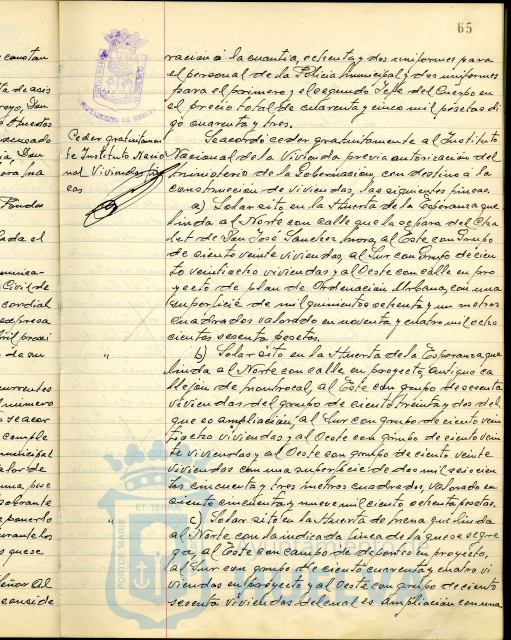 65
ración a la cuantia, ochenta y dos uniformes para
el personal de la Policia Municipal y dos uniformes
para el primero y el segundo Jefe del Cuerpo en
el precio total de cuarenta y cinco mil pesetas di
go cuarenta y tres.
Ceder gratuitamen
te Instituto Nacio
nal Vivienda fin
cas
Se acordó ceder gratuitamente al Instituto
Nacional de la Vivienda previa autorización del
Ministerio de la Gobernación, con destino a la
construcción de viviendas, las siguientes fincas.
a) Solar sito en la Huerta de la Esperanza que
linda al Norte con calle que la separa del Cha
let de Don José Sanchez Mora, al Este con Grupo
de ciento veinte viviendas, al Sur con Grupo de cien
to veintiocho viviendas y al Oeste con calle en pro
yecto de plan de Ordenación Urbana, con una
superficie de mil quinientos ochenta y un metros
cuadrados valorado en noventa y cuatro mil ocho
cientos sesenta pesetas.
" b) Solar sito en la Huerta de la Esperanza que
linda al Norte con calle en proyecto, antiguo ca
llejon de Montrocal, al Este con grupo de sesenta
viviendas del grupo de ciento treinta y dos del
que es ampliación, al Sur con grupo de ciento vein
tiocho viviendas y al Oeste con grupo de ciento vein
te viviendas y al Oeste con grupo de ciento veinte
viviendas con una superficie de dos mil seiscien
tos cincuenta y tres metros cuadrados, valorado en
ciento cincuenta y nueve mil ciento ochenta pesetas.
" c) Solar sito en la Huerta de Mena que linda
al Norte con la indicada linea de la que se segre
ga, al Este con campo de deportes en proyecto,
al Sur con grupo de ciento cuarenta y cuatro vi
viendas en proyecto y al Oeste con grupo de ciento
sesenta viviendas del cual es ampliación con una